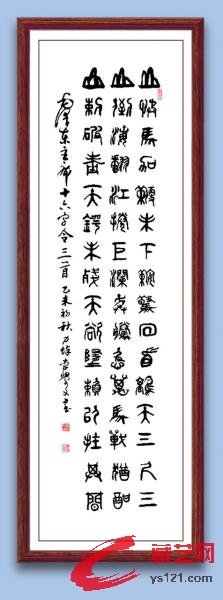 山快馬加鞭未下鞍驚回首離天三尺三
山倒海翻江捲巨瀾奔騰急萬馬戰猶酣
山刺破青天鍔未殘天欲墮賴以拄其間
毛澤东主席十六字令三首 乙未初秋
藏艺网
ys121.com